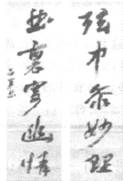 弦中参妙理
曲裏寄幽情